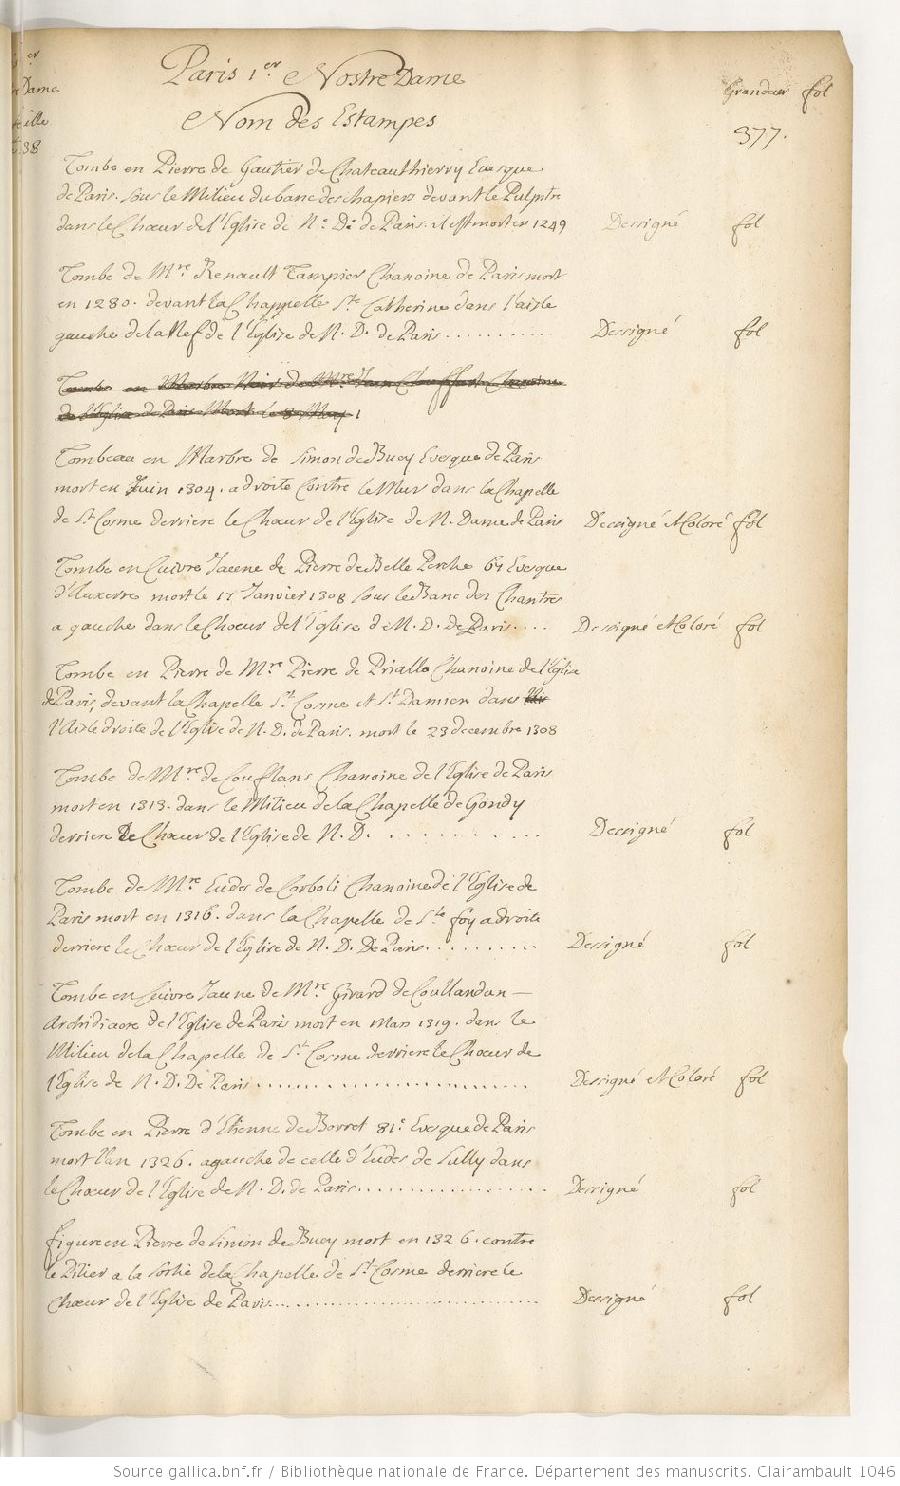 Paris 1.er Nostre Dame
Grandeur fol
Nom des Estampes
377.
Tombe en Pierre de Gautier de Chateauthierry Evesque
de Paris. sous le Milieu du banc des chapiers devant le Pulpitre
dans le Chœur de l'Eglise de N.e De de Paris. il est mort en 1249 Dessigné fol
Tombe de Mre. Renault Tampier Chanoine de Paris mort
en 1280. devant la Chappelle Ste Catherine dans l'aisle
gauche de la Nef de l'Eglise de N. D. de Paris .......... Dessigné fol
Tombe en Marbre Noir de Mre Jean Chanoine
de l'Eglise de Paris Mort le 8 May 1
Tombeau en Marbre de Simon de Bucy Evesque de Paris
mort en Juin 1304. a droite contre le Mur dans la Chapelle
de St Cosme derriere le Chœur de l'Eglise de N. Dame de Paris Dessigné et Coloré fol
Tombe en Cuivre Jaune de Pierre de Belle Perche 64 Evesque
d'Auxerre mort le 17 Janvier 1308 sous le Banc des Chantres
a gauche dans le Chœur de l'Eglise de N. D. de Paris .... Dessigné et Coloré fol
Tombe en Pierre de Mre Pierre de Chanoine de l'Eglise
de Paris, devant la Chapelle St Cosme et St Damien dans
l'Aisle droite de l'Eglise de N. D. de Paris. mort le 23 decembre 1308
Tombe de Mre de Conflans Chanoine de l'Eglise de Paris
mort en 1313. dans le Milieu de la Chapelle de Gondy
derriere le Chœur de l'Eglise de N. D. .......... Dessigné fol
Tombe de Mre Eudes de Corboli Chanoine de l'Eglise de
Paris mort en 1316. dans la Chapelle de Ste foy a droite
derriere le Chœur de l'Eglise de N. D. De Paris .......... Dessigné fol
Tombe en Cuivre Jaune de Mre. Girard de Coullandon —
Archidiacre de l'Eglise de Paris mort en Mars 1319. dans le
Milieu de la Chapelle de St Cosme derriere le Chœur de
l'Eglise de N. D. De Paris .......................... Dessigné et Coloré fol
Tombe en Pierre d'Etienne de Borret 81e Evesque de Paris
mort l'an 1326. a gauche de celle d'Eudes de Sully dans
le Chœur de l'Eglise de N. D. de Paris .................. Dessigné fol
figure en Pierre de Simon de Bucy mort en 1326. contre
le Pilier a la Sortie de la Chapelle de St Cosme derriere le
Chœur de l'Eglise de Paris .......................... Dessigné fol
Source gallica.bnf.fr / Bibliothèque nationale de France. Département des manuscrits. Clairambault 1046